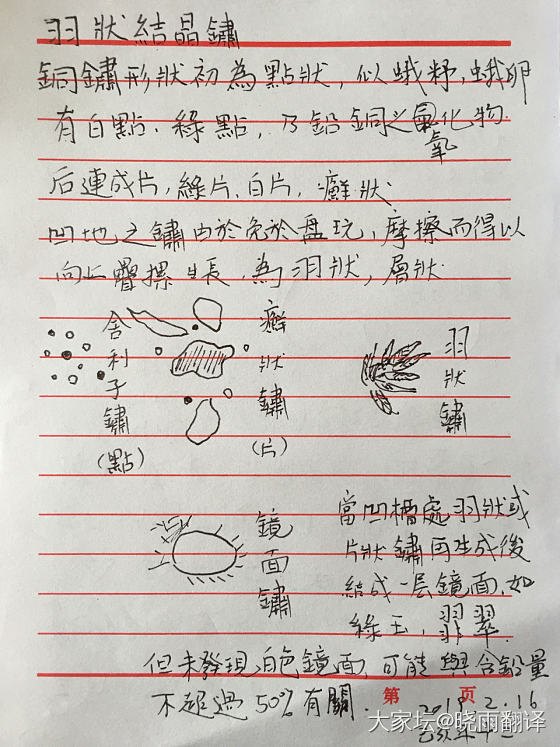 羽狀結晶鏽
銅鏽形狀初為點狀，似蛾籽，蛾卵
有白點．綠點，乃鉛銅之氯化物．
氧
后連成片，綠片．白片，癬狀
凹地之鏽由於免於盘玩，摩擦而得以
向上疊摞生長，為羽狀，層狀
舍利子鏽（點）
癬狀鏽（片）
羽狀鏽
鏡面鏽
當凹槽處羽狀或
片狀鏽再生成後
結成一层鏡面，如
綠玉，翡翠．
但未發現白色鏡面，可能與含鉛量
不超過50%有關．
第 页
2019.2.16
大家坛@晓雨翻译